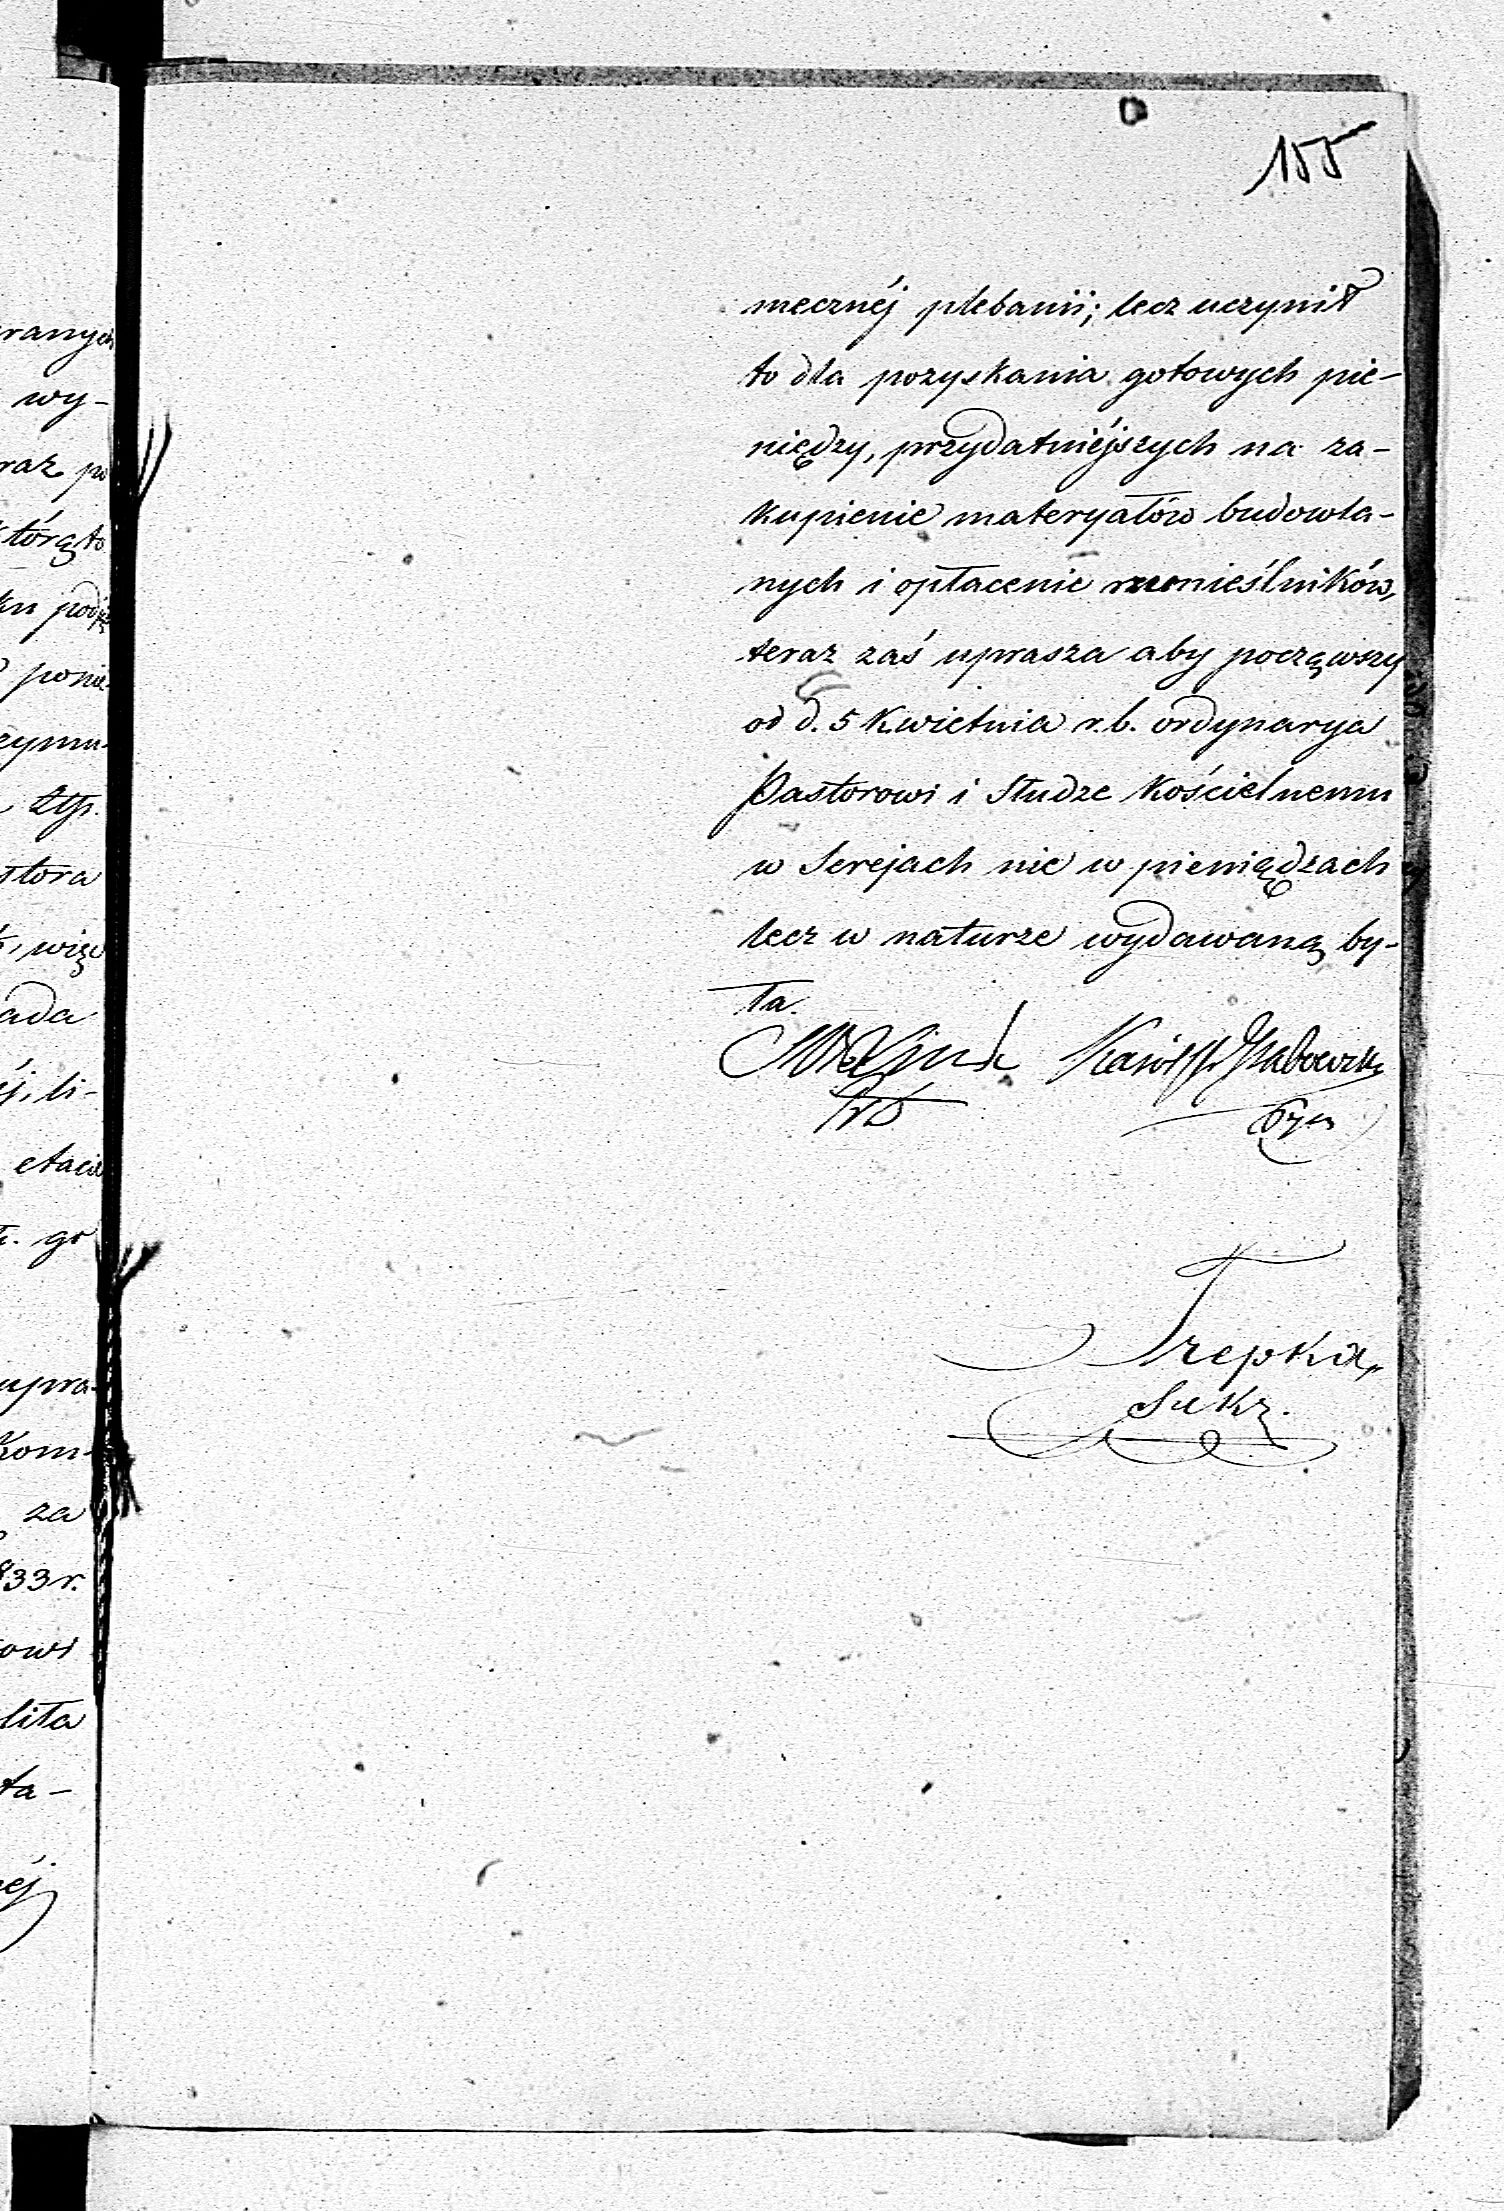 155
mecznéj plebanii; lecz uczynił
to dla pozyskania gotowych pie-
niędzy, przydatniéjszych na za-
kupienie materyałów budowla-
nych i opłacenie rzemieślników,
teraz zaś uprasza aby począwszy
od d. 5 Kwietnia r.b. ordynarya
Pastorowi i Słudze Kościelnemu
w Serejach nie w pieniądzach
lecz w naturze wydawaną by-
ła.
Karól Grabowski
Trepka,
Sekr.
ranych
wy-
raz po
którą to
ponie
zymu-
Złp.
stora
więc
ada
éj, li-
etacie
go
upra-
Kom-
za
833 r.
owi
liła
ta-
éj